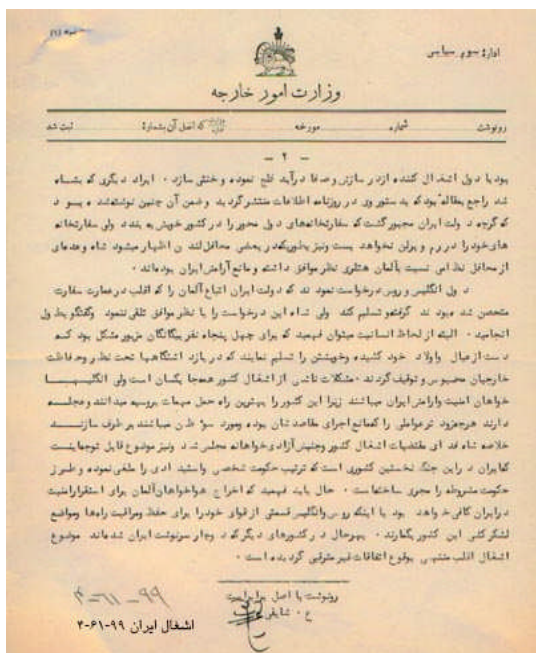 اداره سوم سیاسی
وزارت امور خارجه
رونوشت شماره مورخه که اصل آن بشماره ثبت شد
- ۲ -
بود با دول اشغال کننده ازدر سازش وصفا درآید خلع نموده و خنثی سازد ۰ ایراد دیگری که بشاه
شد راجع بمقاله بود که بدستور وی در روزنامه اطلاعات منتشر گردید و ضمن آن چنین نوشته شده بود
که گرچه دولت ایران مجبور گشت که سفارتخانه‌های دول محور را در کشور خویش به بندد ولی سفارتخانه
های خود را در رم و برلن نخواهد بست ونیز بطوریکه در بعضی محافل لندن اظهار میشود شاه وعده‌ای
از محافل نظامی نسبت بآلمان هتلری نظر موافق داشته و مانع آرامش ایران بوده‌اند ۰
دول انگلیس و روس درخواست نمودند که دولت ایران اتباع آلمان را که اغلب در عمارت سفارت
متحصن شده بودند گرفته و تسلیم کند ولی شاه این درخواست را با نظر موافق تلقی ننمود وگفتگو بطول
انجامید ۰ البته از لحاظ انسانیت میتوان فهمید که برای چهل پنجاه نفر بیگانگان مزبور مشکل بود که
دست از عیال واولاد خود کشیده وخویشتن را تسلیم نمایند که در بازداشتگاهها تحت نظر و حفاظت
خارجیان محبوس و توقیف گردند ۰ مشکلات ناشی از اشغال کشور همه‌جا یکسان است ولی انگلیسها
خواهان امنیت وآرامش ایران میباشند زیرا این کشور را بهترین راه حمل مهمات بروسیه میدانند وعجله
دارند هرچه زودتر عواملی را که مانع اجرای مقاصدشان بوده ومورد سوء ظن میباشند بر طرف سازند
خلاصه شاه فدای مقتضیات اشغال کشور وجنبش آزادیخواهانه مجلس شد ونیز موضوع قابل توجه اینست
که ایران در این جنگ نخستین کشوری است که ترتیب حکومت شخصی واستبدادی را ملغی نموده و طرز
حکومت مشروطه را مجری ساخته است ۰ حال باید فهمید که اخراج هواخواهان آلمان برای استقرار امنیت
در ایران کافی خواهد بود یا اینکه روس وانگلیس قسمتی از قوای خود را برای حفظ ومراقبت راه‌ها ومواضع
لشگرکشی این کشور بگمارند ۰ بهرحال در کشورهای دیگر که دچار سرنوشت ایران شده‌اند موضوع
اشغال اغلب منتهی بوقوع اتفاقات غیر مترقبی گردیده است ۰
رونوشت با اصل برابر است
۴-۶۱-۹۹
اشغال ایران ۹۹-۶۱-۴